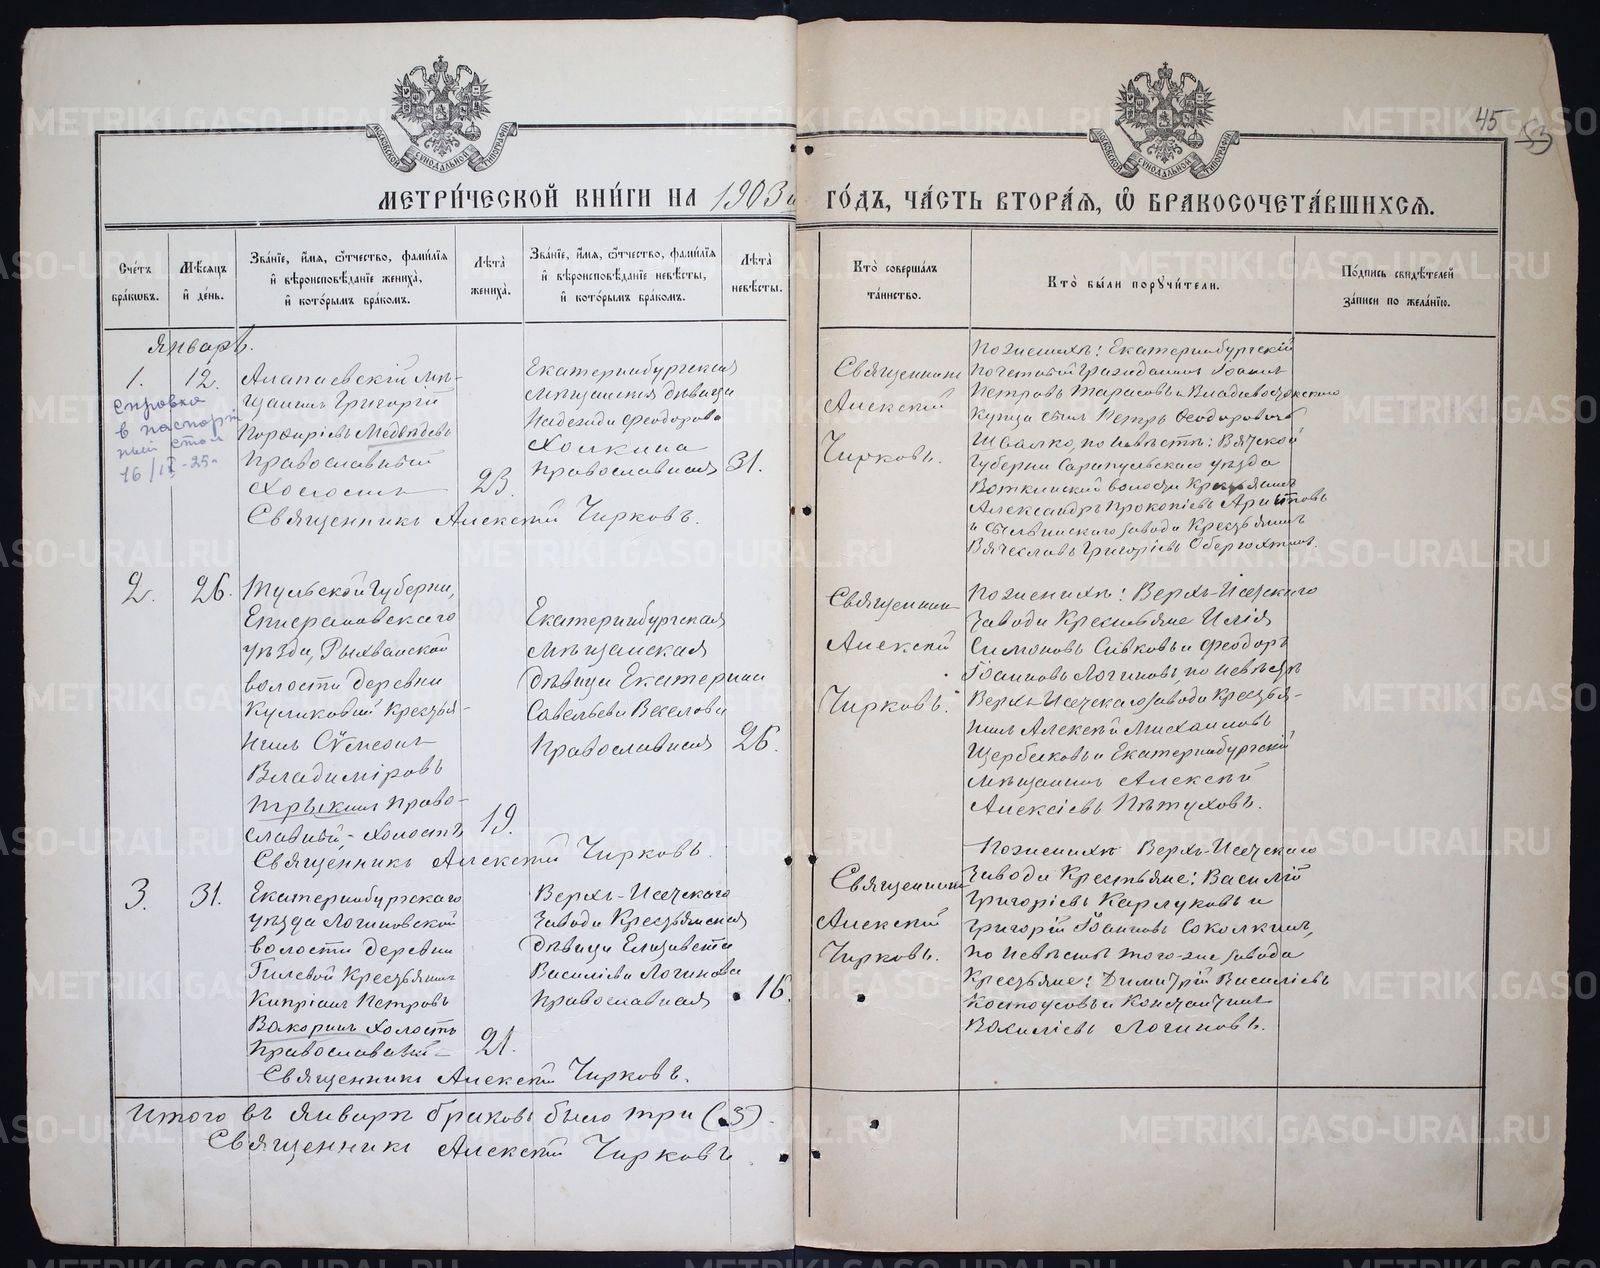 45
53
МЕТРИ́ЧЕСКОЙ КНИ́ГИ НА 1903й ГО́ДЪ, ЧА́СТЬ ВТОРА́Я, Ѡ БРАКОСОЧЕТА́ВШИХСЯ.
Сче́тъ бра́ковъ.
Мѣ́сяцъ и҆ де́нь.
Зва́нїе, и҆́мя, ѻ҆́тчество, фами́лїя и҆ вѣроисповѣ́данїе жениха̀, и҆ кото́рымъ бра́комъ.
Лѣ́та жениха̀.
Зва́нїе, и҆́мя, ѻ҆́тчество, фами́лїя и҆ вѣроисповѣ́данїе невѣ́сты, и҆ кото́рымъ бра́комъ.
Лѣ́та невѣ́сты.
Кто̀ соверша́лъ та́инство.
Кто̀ бы́ли поручи́тели.
По́дпись свидѣ́телей за́писи по жела́нїю.
Январь.
1.
12.
справка
в паспорт
ный стол
16/IX-25г
Алапаевскій мѣ-
щанинъ Григорій
Порфиріевъ Медвѣдевъ
Православный
Холостъ
23.
Екатеринбургская
мѣщанская дѣвица
Надежда Феодорова
Холкина
православная
31.
Священникъ Алексій Чирковъ.
Священникъ
Алексій
Чирковъ.
По женихѣ: Екатеринбургскій
Почетный Гражданинъ Іоаннъ
Петровъ Тарасовъ и Владивостокскаго
Купца сынъ Петръ Феодоровичъ
Швалко, по невѣстѣ: Вятской
Губерніи Сарапульскаго уѣзда
Воткинской волости Крестьянинъ
Александръ Прокопіевъ
заводи Крестьянинъ
Вячеславъ Григоріевъ Обергохтинъ.
2.
26.
Тульской Губерніи,
Епифановскаго
уѣзда,
волости деревни
Куликовки Крестья-
нинъ Сѵмеонъ
Владиміровъ
право-
славный, холостъ
19.
Екатеринбургская
мѣщанская
Дѣвица Екатерина
Савельева Веселова
православная
26.
Священникъ Алексій Чирковъ.
Священникъ
Алексій
Чирковъ.
По женихѣ: Верхъ-Исетскаго
завода Крестьяне Илія
Симоновъ Сивковъ и Феодоръ
Іоанновъ Логиновъ, по невѣстѣ
Верхъ-Исетскаго завода Крестья-
нинъ Алексѣй Михаиловъ
Щербаковъ и Екатеринбургскій
мѣщанинъ Алексѣй
Алексіевъ Пѣтуховъ.
3.
31.
Екатеринбургскаго
уѣзда Логиновской
волости деревни
Гилевой Крестьянинъ
Кипріанъ Петровъ
Вакоринъ Холостъ
православный
21.
Верхъ-Исетскаго
завода Крестьянская
Дѣвица Елизавета
Василіева Логинова
православная
16.
Священникъ Алексій Чирковъ.
Священникъ
Алексій
Чирковъ.
По женихѣ Верхъ-Исетскаго
завода Крестьяне: Василій
Григоріевъ Карлуковъ и
Григорій Іоанновъ Соколкинъ,
по невѣстѣ того-же завода
Крестьяне: Димитрій Василіевъ
Костоусовъ и Константинъ
Василіевъ Логиновъ.
Итого въ Январѣ браковъ было три (3).
Священникъ Алексій Чирковъ
METRIKI.GASO-URAL.RU